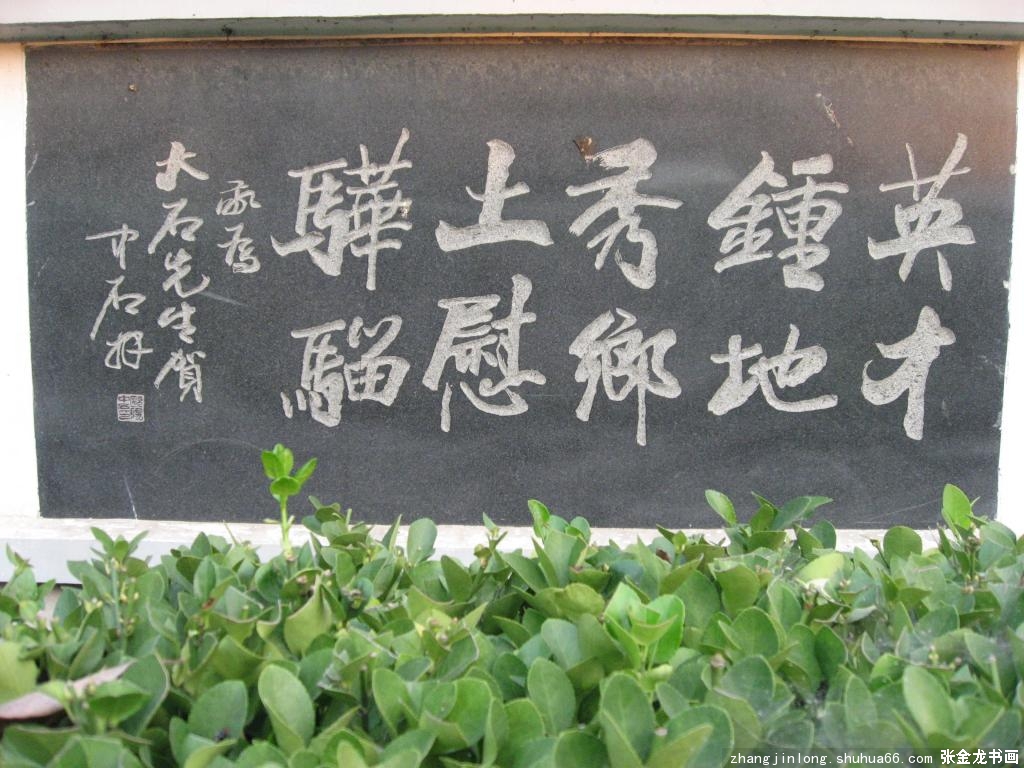 英才
鍾地
秀鄉
土慰
驊騮
敬为
大石先生贺
中石拜
zhangjinlong.shuhua66.com 张金龙书画